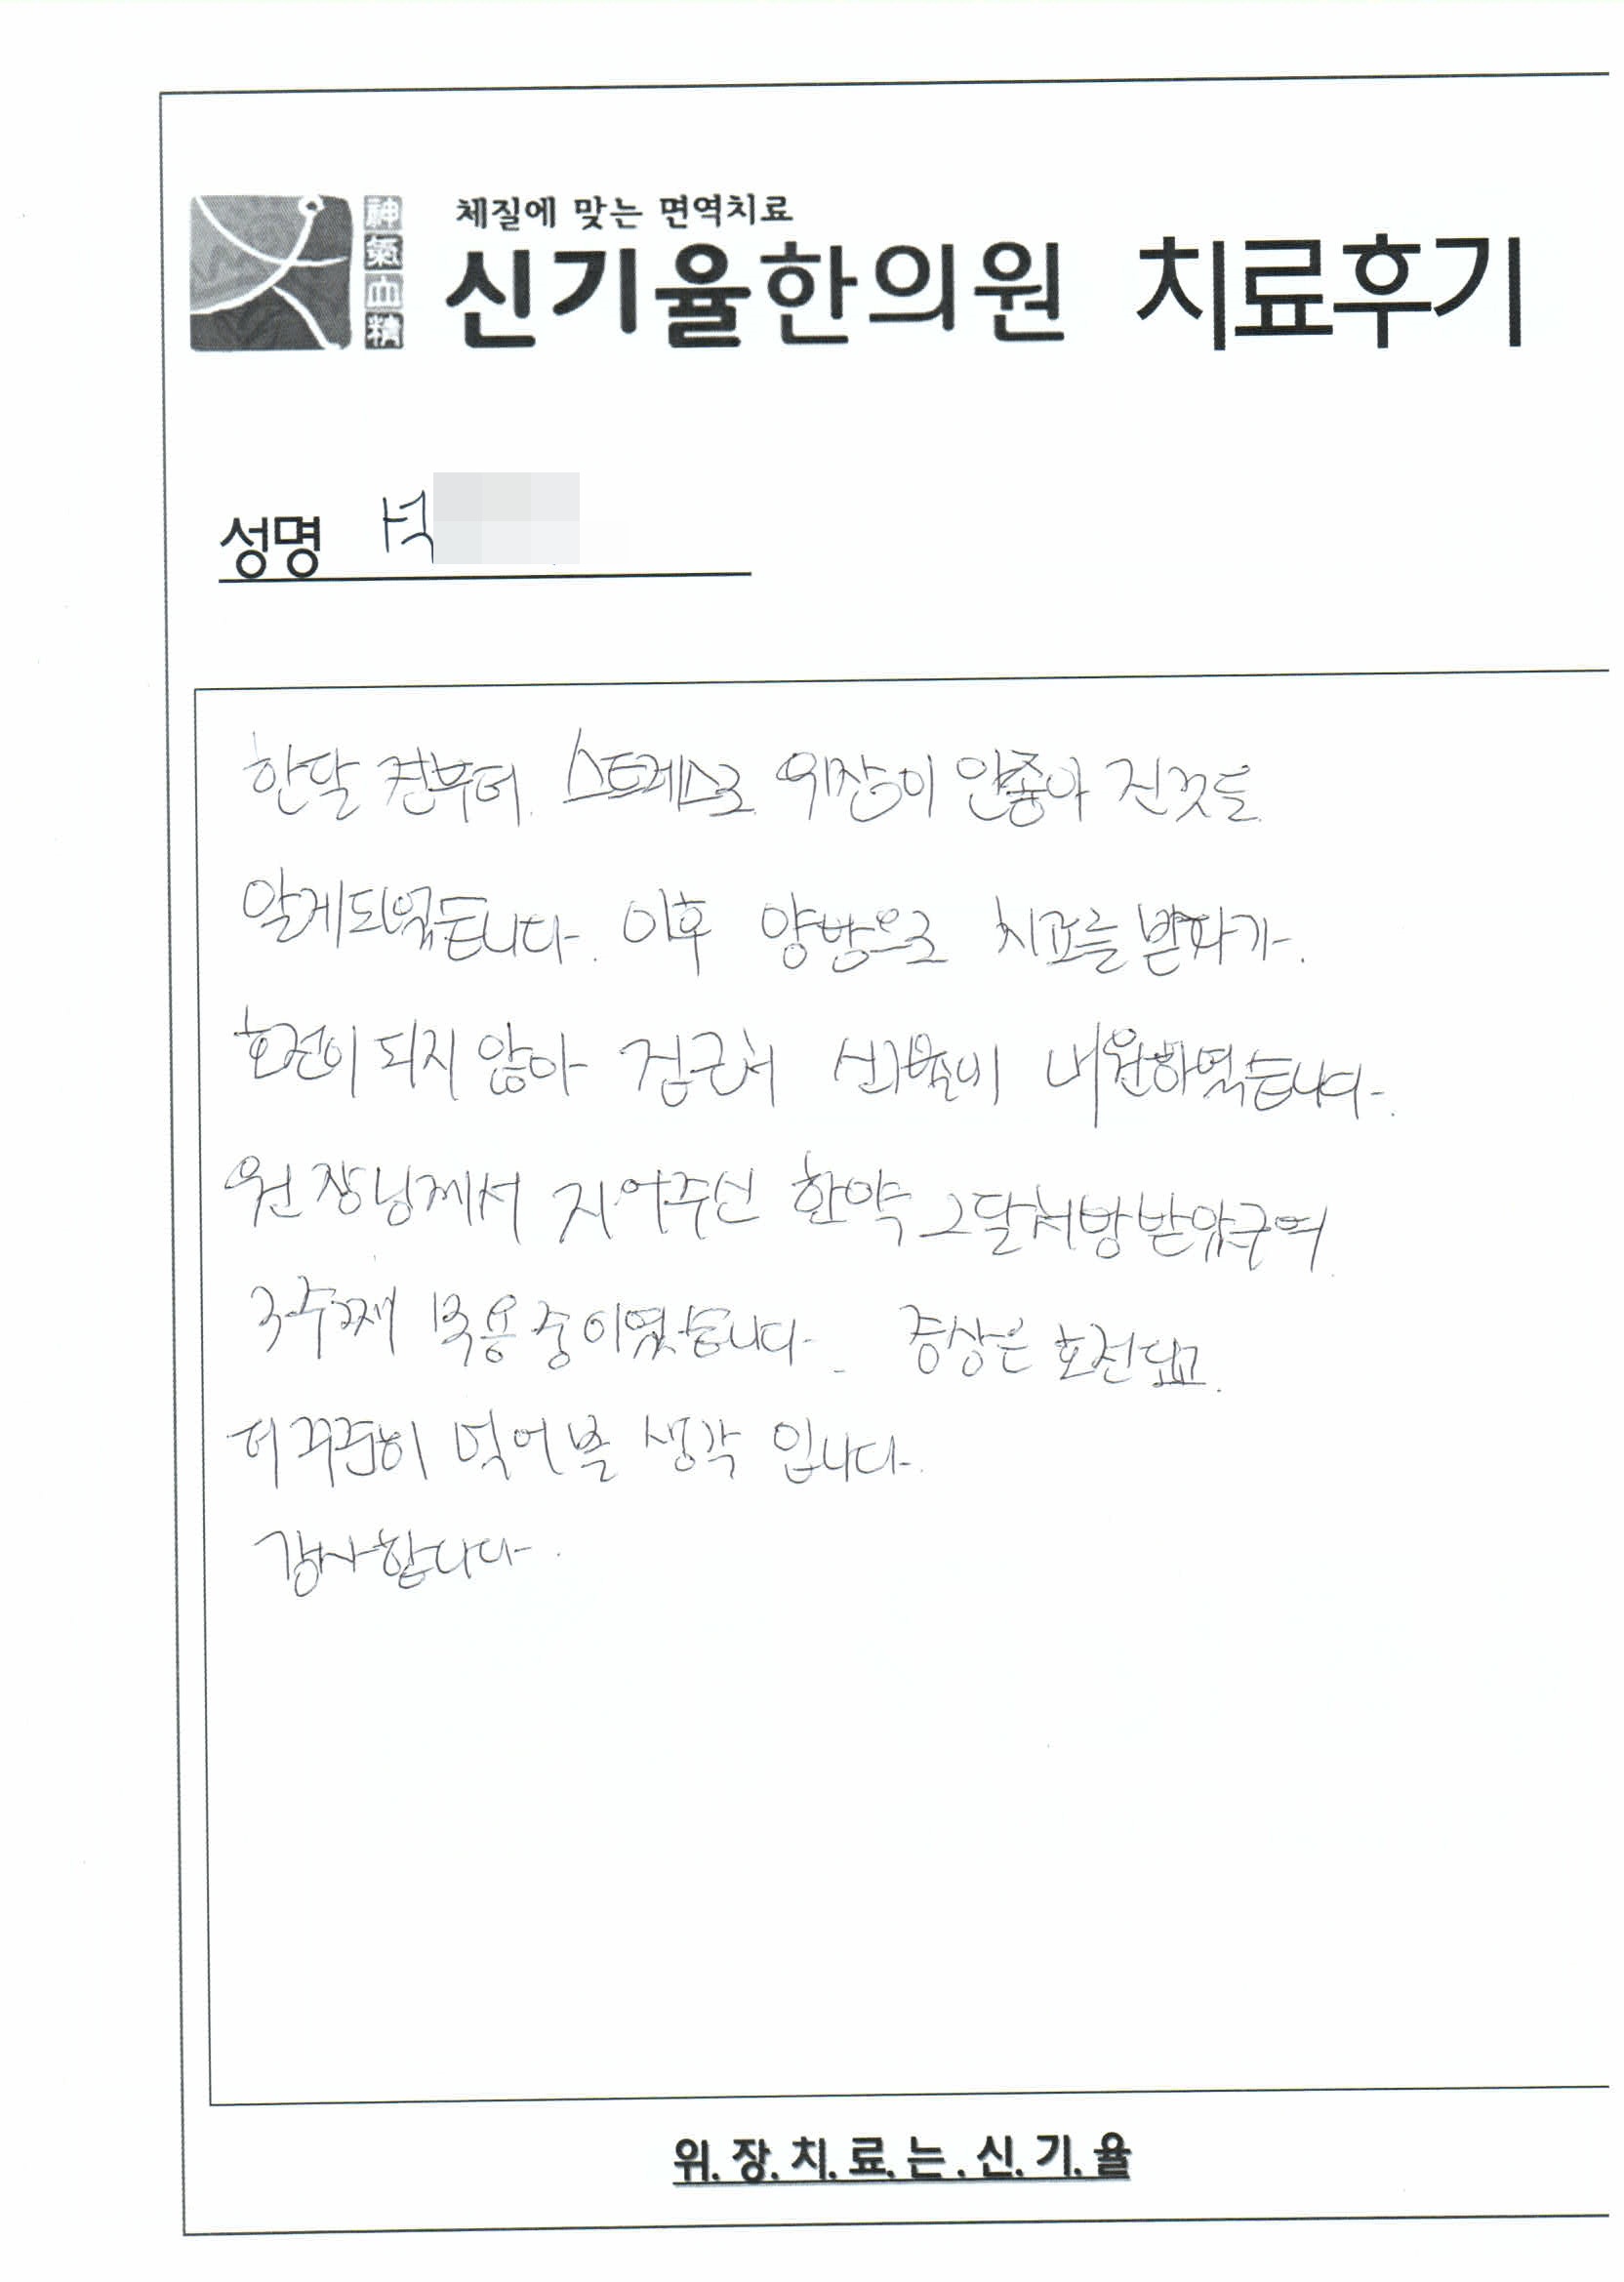 神氣血精
체질에 맞는 면역치료
신기율한의원 치료후기
성명
한달 전부터 스트레스로 위장이 안좋아 진것을
알게되었습니다. 이후 양방으로 치료를 받다가
호전이 되지 않아 집근처 신기율에 내원하였습니다.
원장님께서 지어주신 한약 한달처방받았구여
3주째 복용중이였습니다. 증상은 호전되고
더 꾸준히 먹어볼 생각 입니다.
감사합니다.
위.장.치.료.는.신.기.율